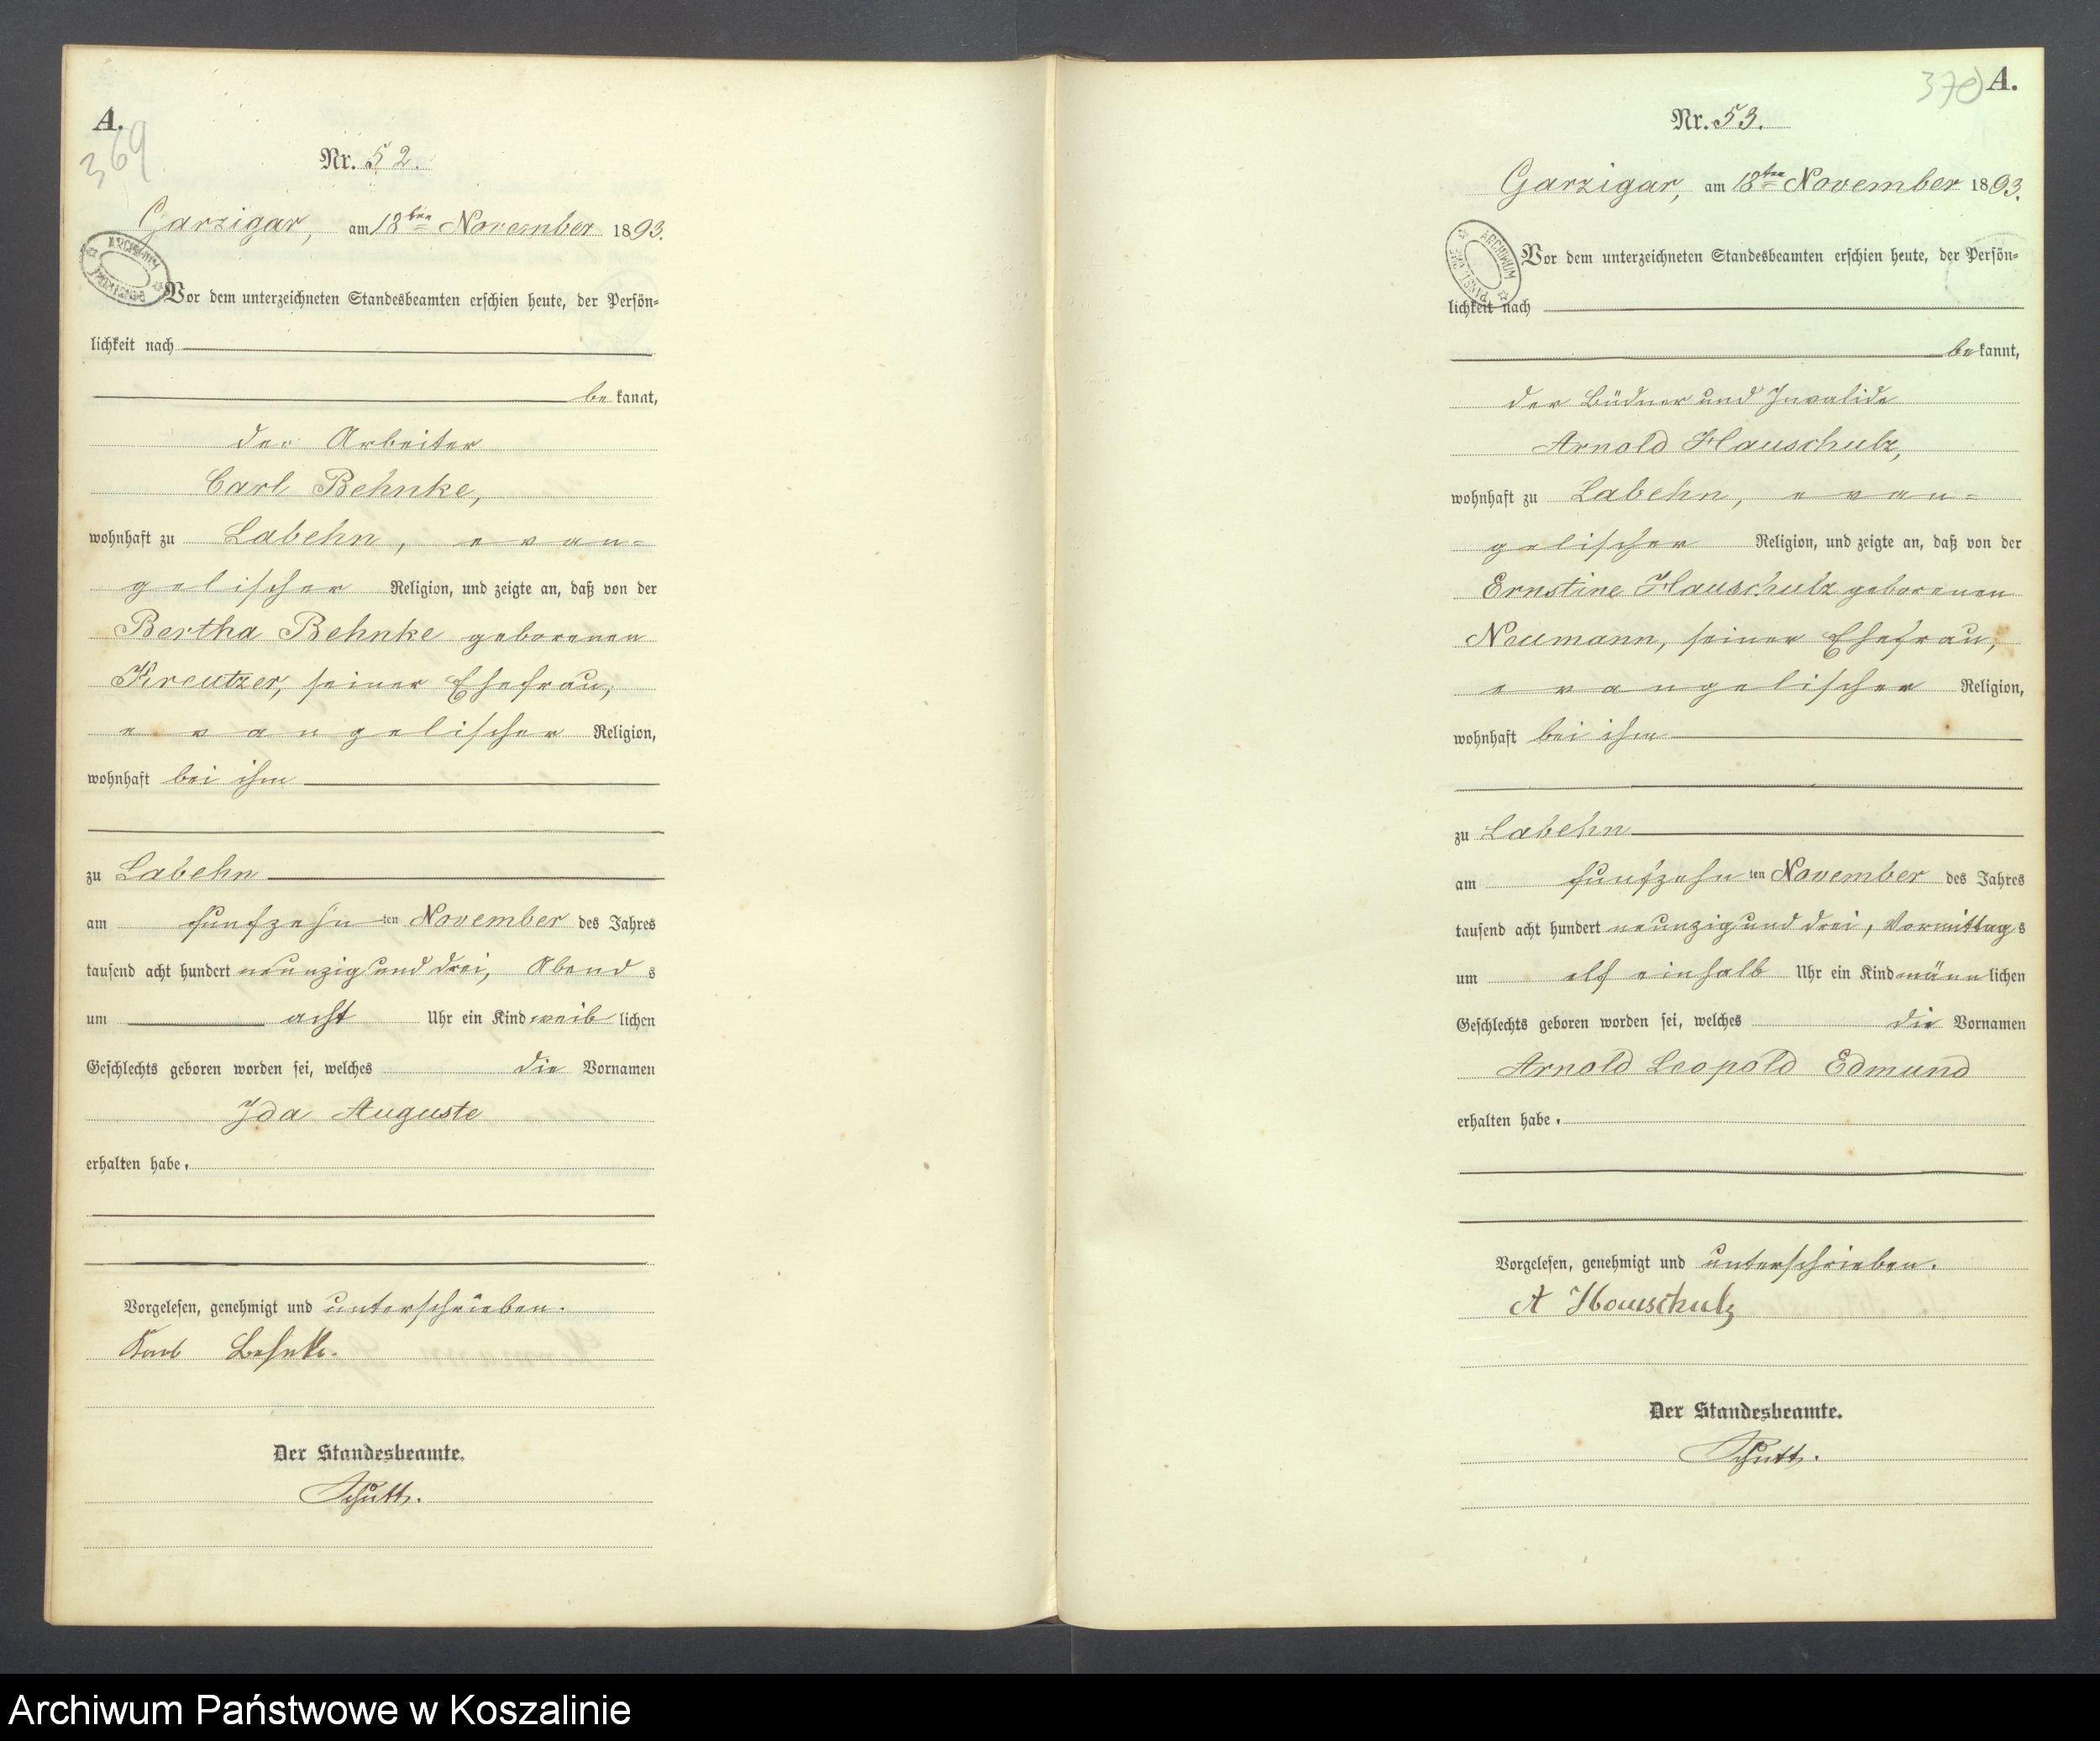 A.
369
Nr. 52.
Garzigar, am 18ten November 1893.
ARCHIWUM
Vor dem unterzeichneten Standesbeamten erschien heute, der Persön=
lichkeit nach
be kannt,
der Arbeiter
Carl Behnke,
wohnhaft zu Labehn, evan=
gelischer Religion, und zeigte an, daß von der
Bertha Behnke geborenen
Kreutzer, seiner Ehefrau,
evangelischer Religion,
wohnhaft bei ihm
zu Labehn
am fünfzehn ten November des Jahres
tausend acht hundert neunzig und drei, Abend s
um acht Uhr ein Kind weib lichen
Geschlechts geboren worden sei, welches die Vornamen
Ida Auguste
erhalten habe.
Vorgelesen, genehmigt und unterschrieben.
Karl Behnke.
Der Standesbeamte.
A.
370
Nr. 53.
Garzigar, am 18ten November 1893.
ARCHIWUM
Vor dem unterzeichneten Standesbeamten erschien heute, der Persön=
lichkeit nach
be kannt,
der Büdner und Invalide
Arnold Hauschulz,
wohnhaft zu Labehn, evan=
gelischer Religion, und zeigte an, daß von der
Ernstine Hauschulz geborenen
Neumann, seiner Ehefrau,
evangelischer Religion,
wohnhaft bei ihm
zu Labehn
am fünfzehn ten November des Jahres
tausend acht hundert neunzig und drei, Vormittag s
um elf einhalb Uhr ein Kind männ lichen
Geschlechts geboren worden sei, welches die Vornamen
Arnold Leopold Edmund
erhalten habe.
Vorgelesen, genehmigt und unterschrieben.
A Hauschulz
Der Standesbeamte.
Archiwum Państwowe w Koszalinie